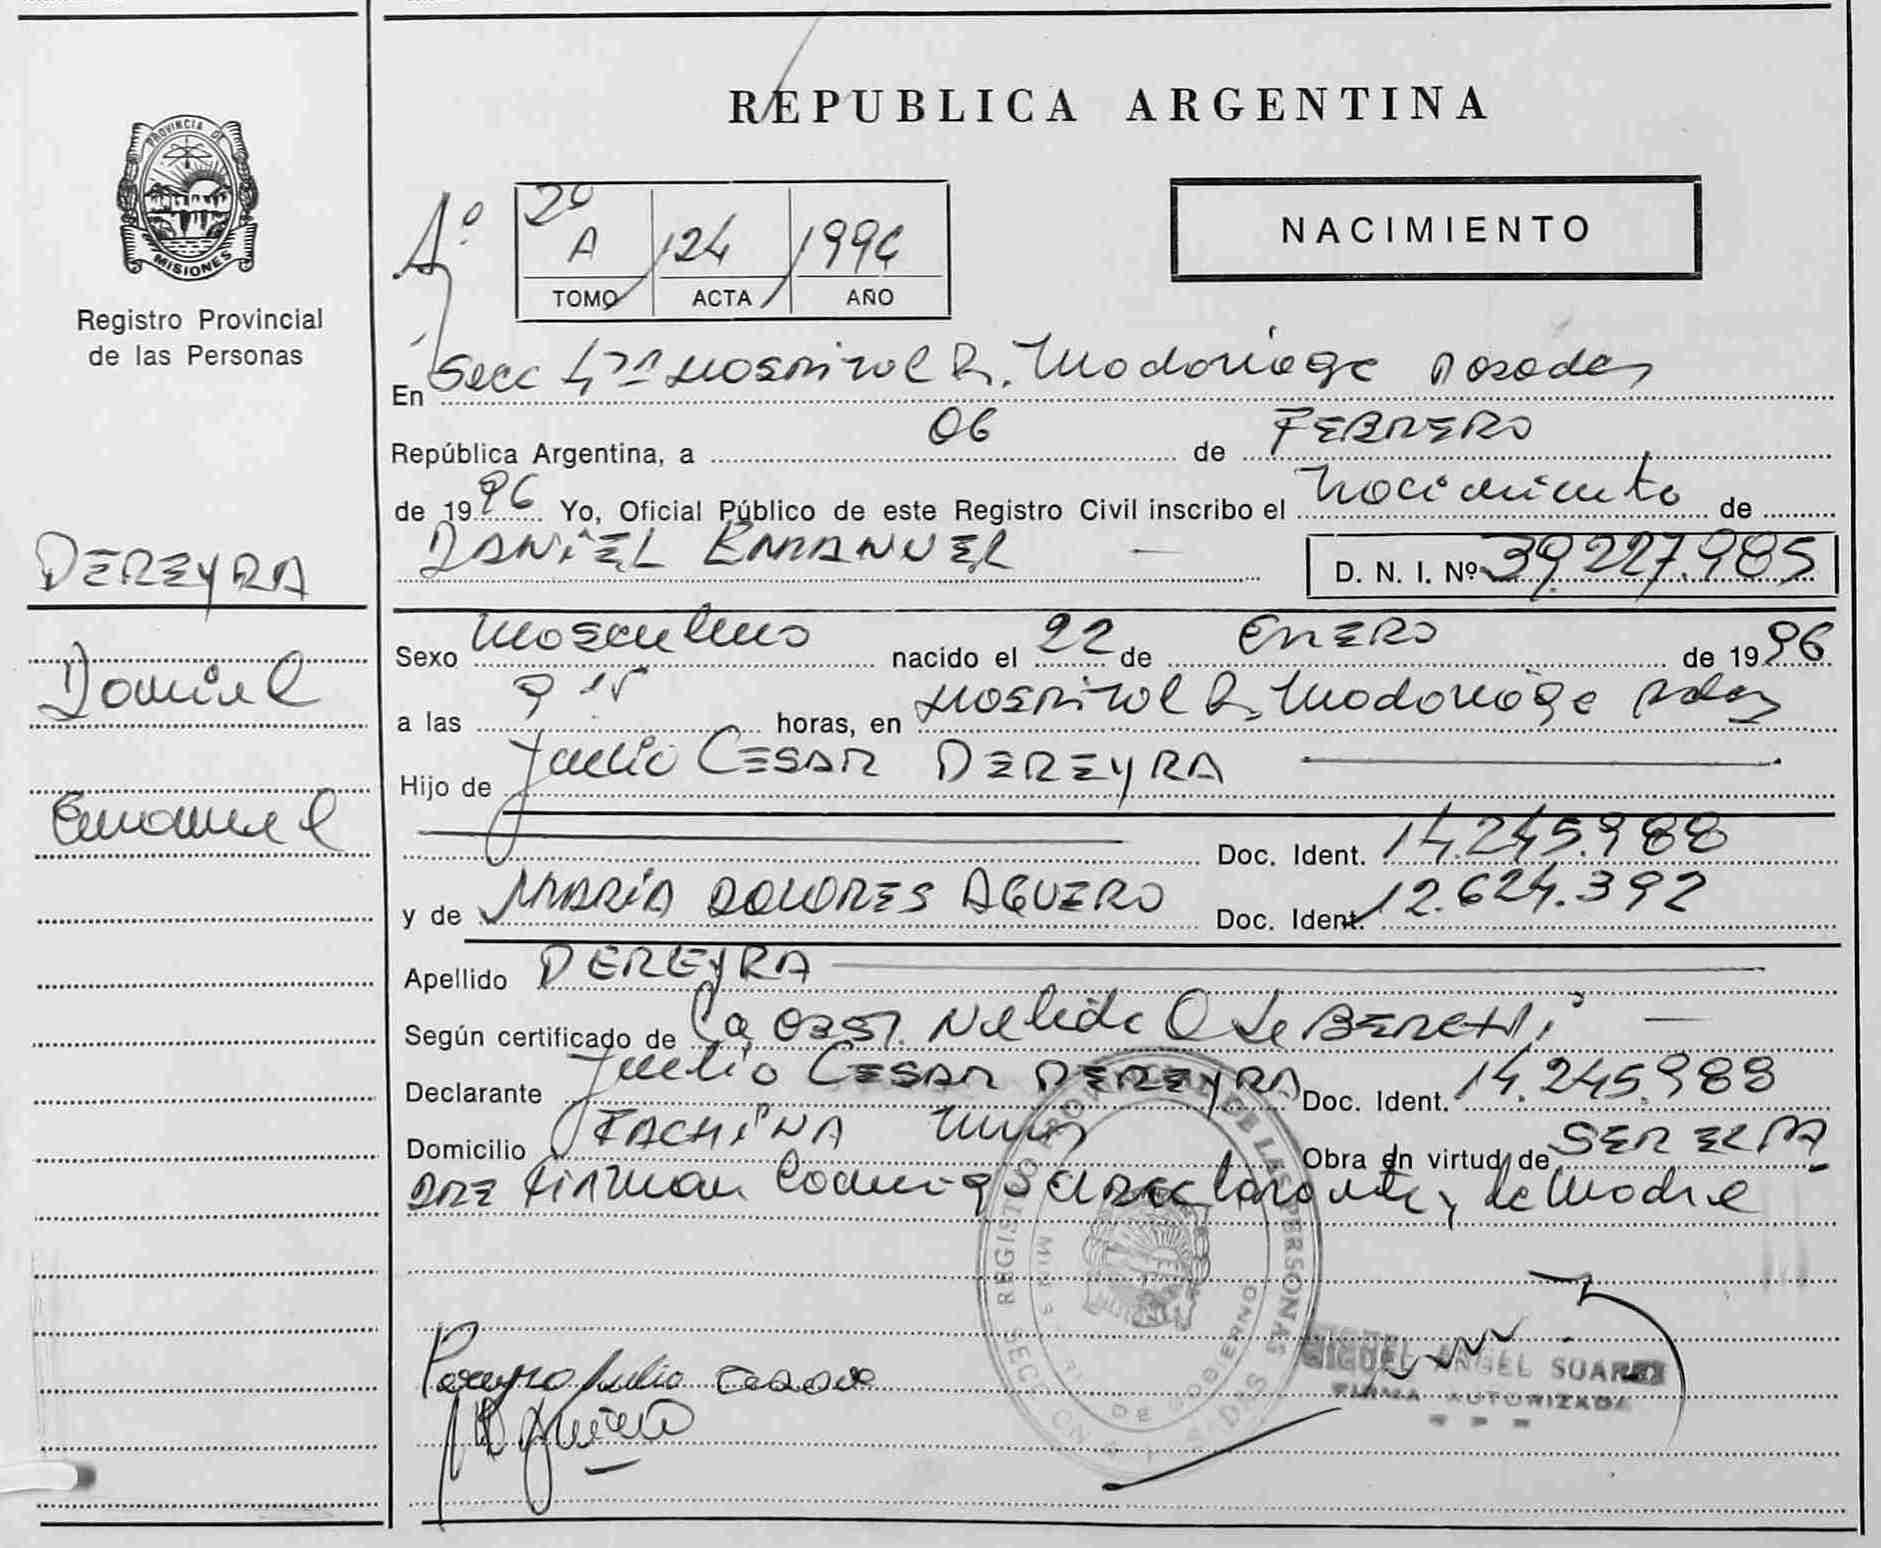 REPUBLICA ARGENTINA
PROVINCIA DE
MISIONES
Registro Provincial
de las Personas
2º
A 124 1996
TOMO ACTA AÑO
NACIMIENTO
En Secc 4ta Hospital R. Madariaga Posadas
República Argentina, a 06 de FEBRERO
de 1996 Yo, Oficial Público de este Registro Civil inscribo el nacimiento de
DANIEL EMANUEL D. N. I. Nº 39.227.985
PEREYRA
Daniel
Emanuel
Sexo Masculino nacido el 22 de ENERO de 1996
a las 9 15 horas, en Hospital R. Madariaga Pdas
Hijo de Julio CESAR PEREYRA
Doc. Ident. 14.245.988
y de MARIA DOLORES AGUERO Doc. Ident. 12.624.392
Apellido PEREYRA
Según certificado de La OBST. Nelida O de
Declarante Julio CESAR PEREYRA Doc. Ident. 14.245.988
Domicilio FACHINA Mnes Obra en virtud de SER EL PA
DRE Firman conmigo el declarante y la Madre
REGISTRO PROVINCIAL DE LAS PERSONAS
DE GOBIERNO
Pereyra Julio Cesar
MIGUEL ANGEL SUAREZ
FIRMA AUTORIZADA